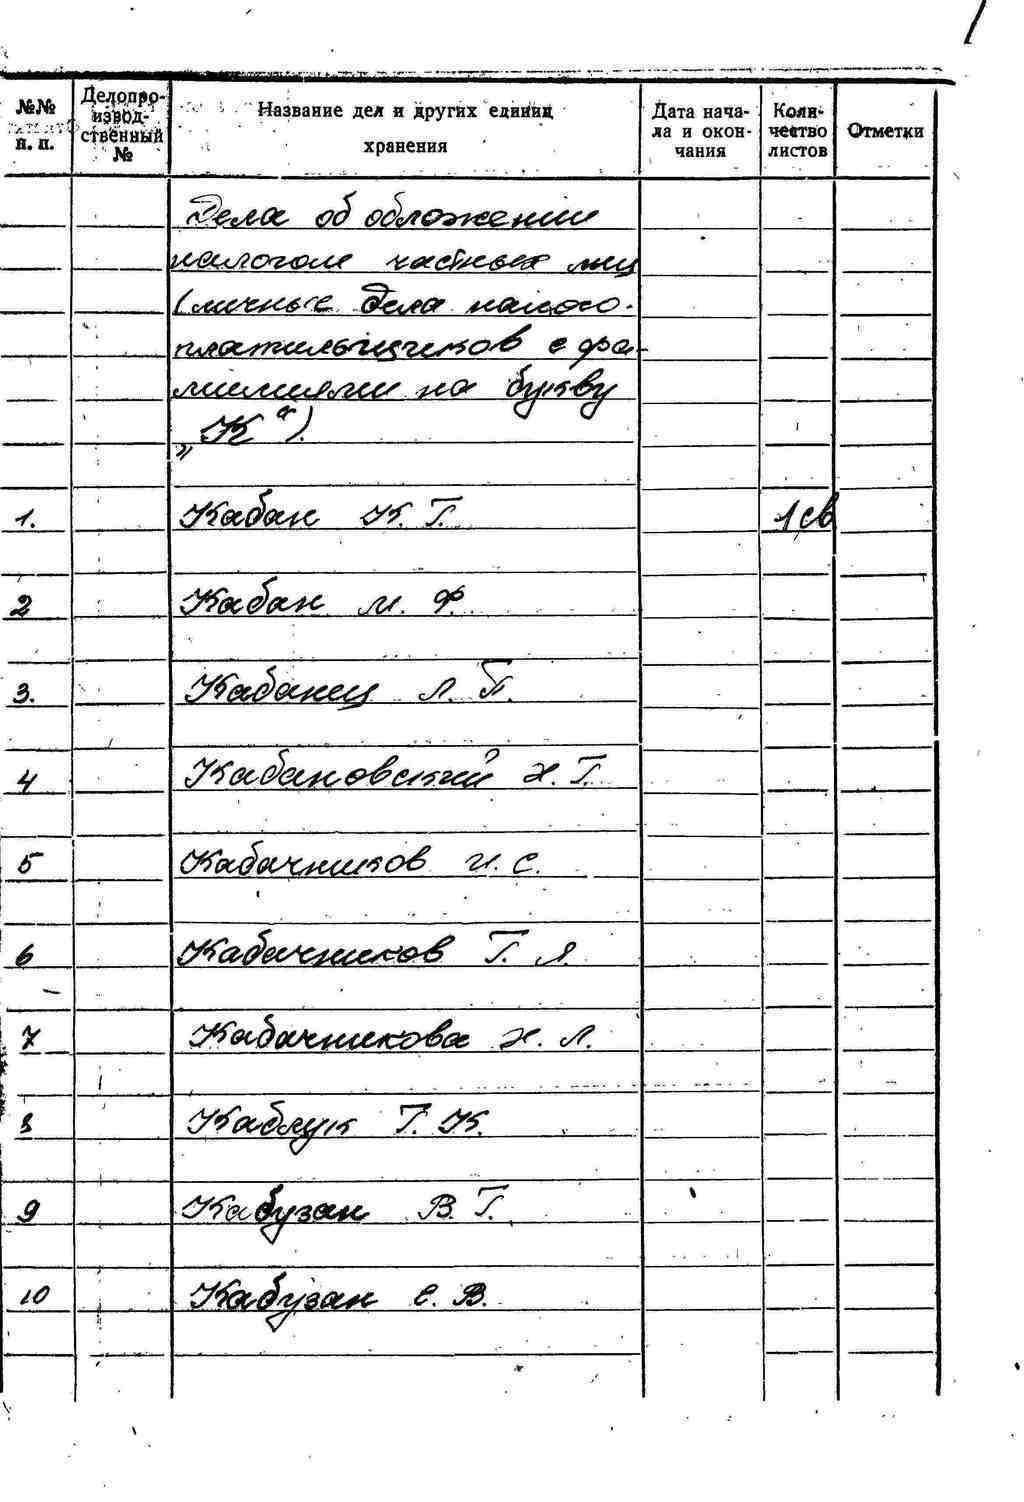 1
№№ п. п. Делопроизводственный № Название дел и других единиц хранения Дата начала и окончания Количество листов Отметки
Дела об обложении
налогом частных лиц
(личные дела налого-
плательщиков с фа-
милиями на букву
„К“).
1. Кабан К. Г. 1 св
2 Кабан М. Ф.
3. Кабанец Л. П.
4 Кабановский Х. Г.
5 Кабачников И. С.
6 Кабачников Г. Я.
7 Кабачникова Х. Л.
8 Каблук Г. К.
9 Кабузан В. Г.
10 Кабузан С. В.